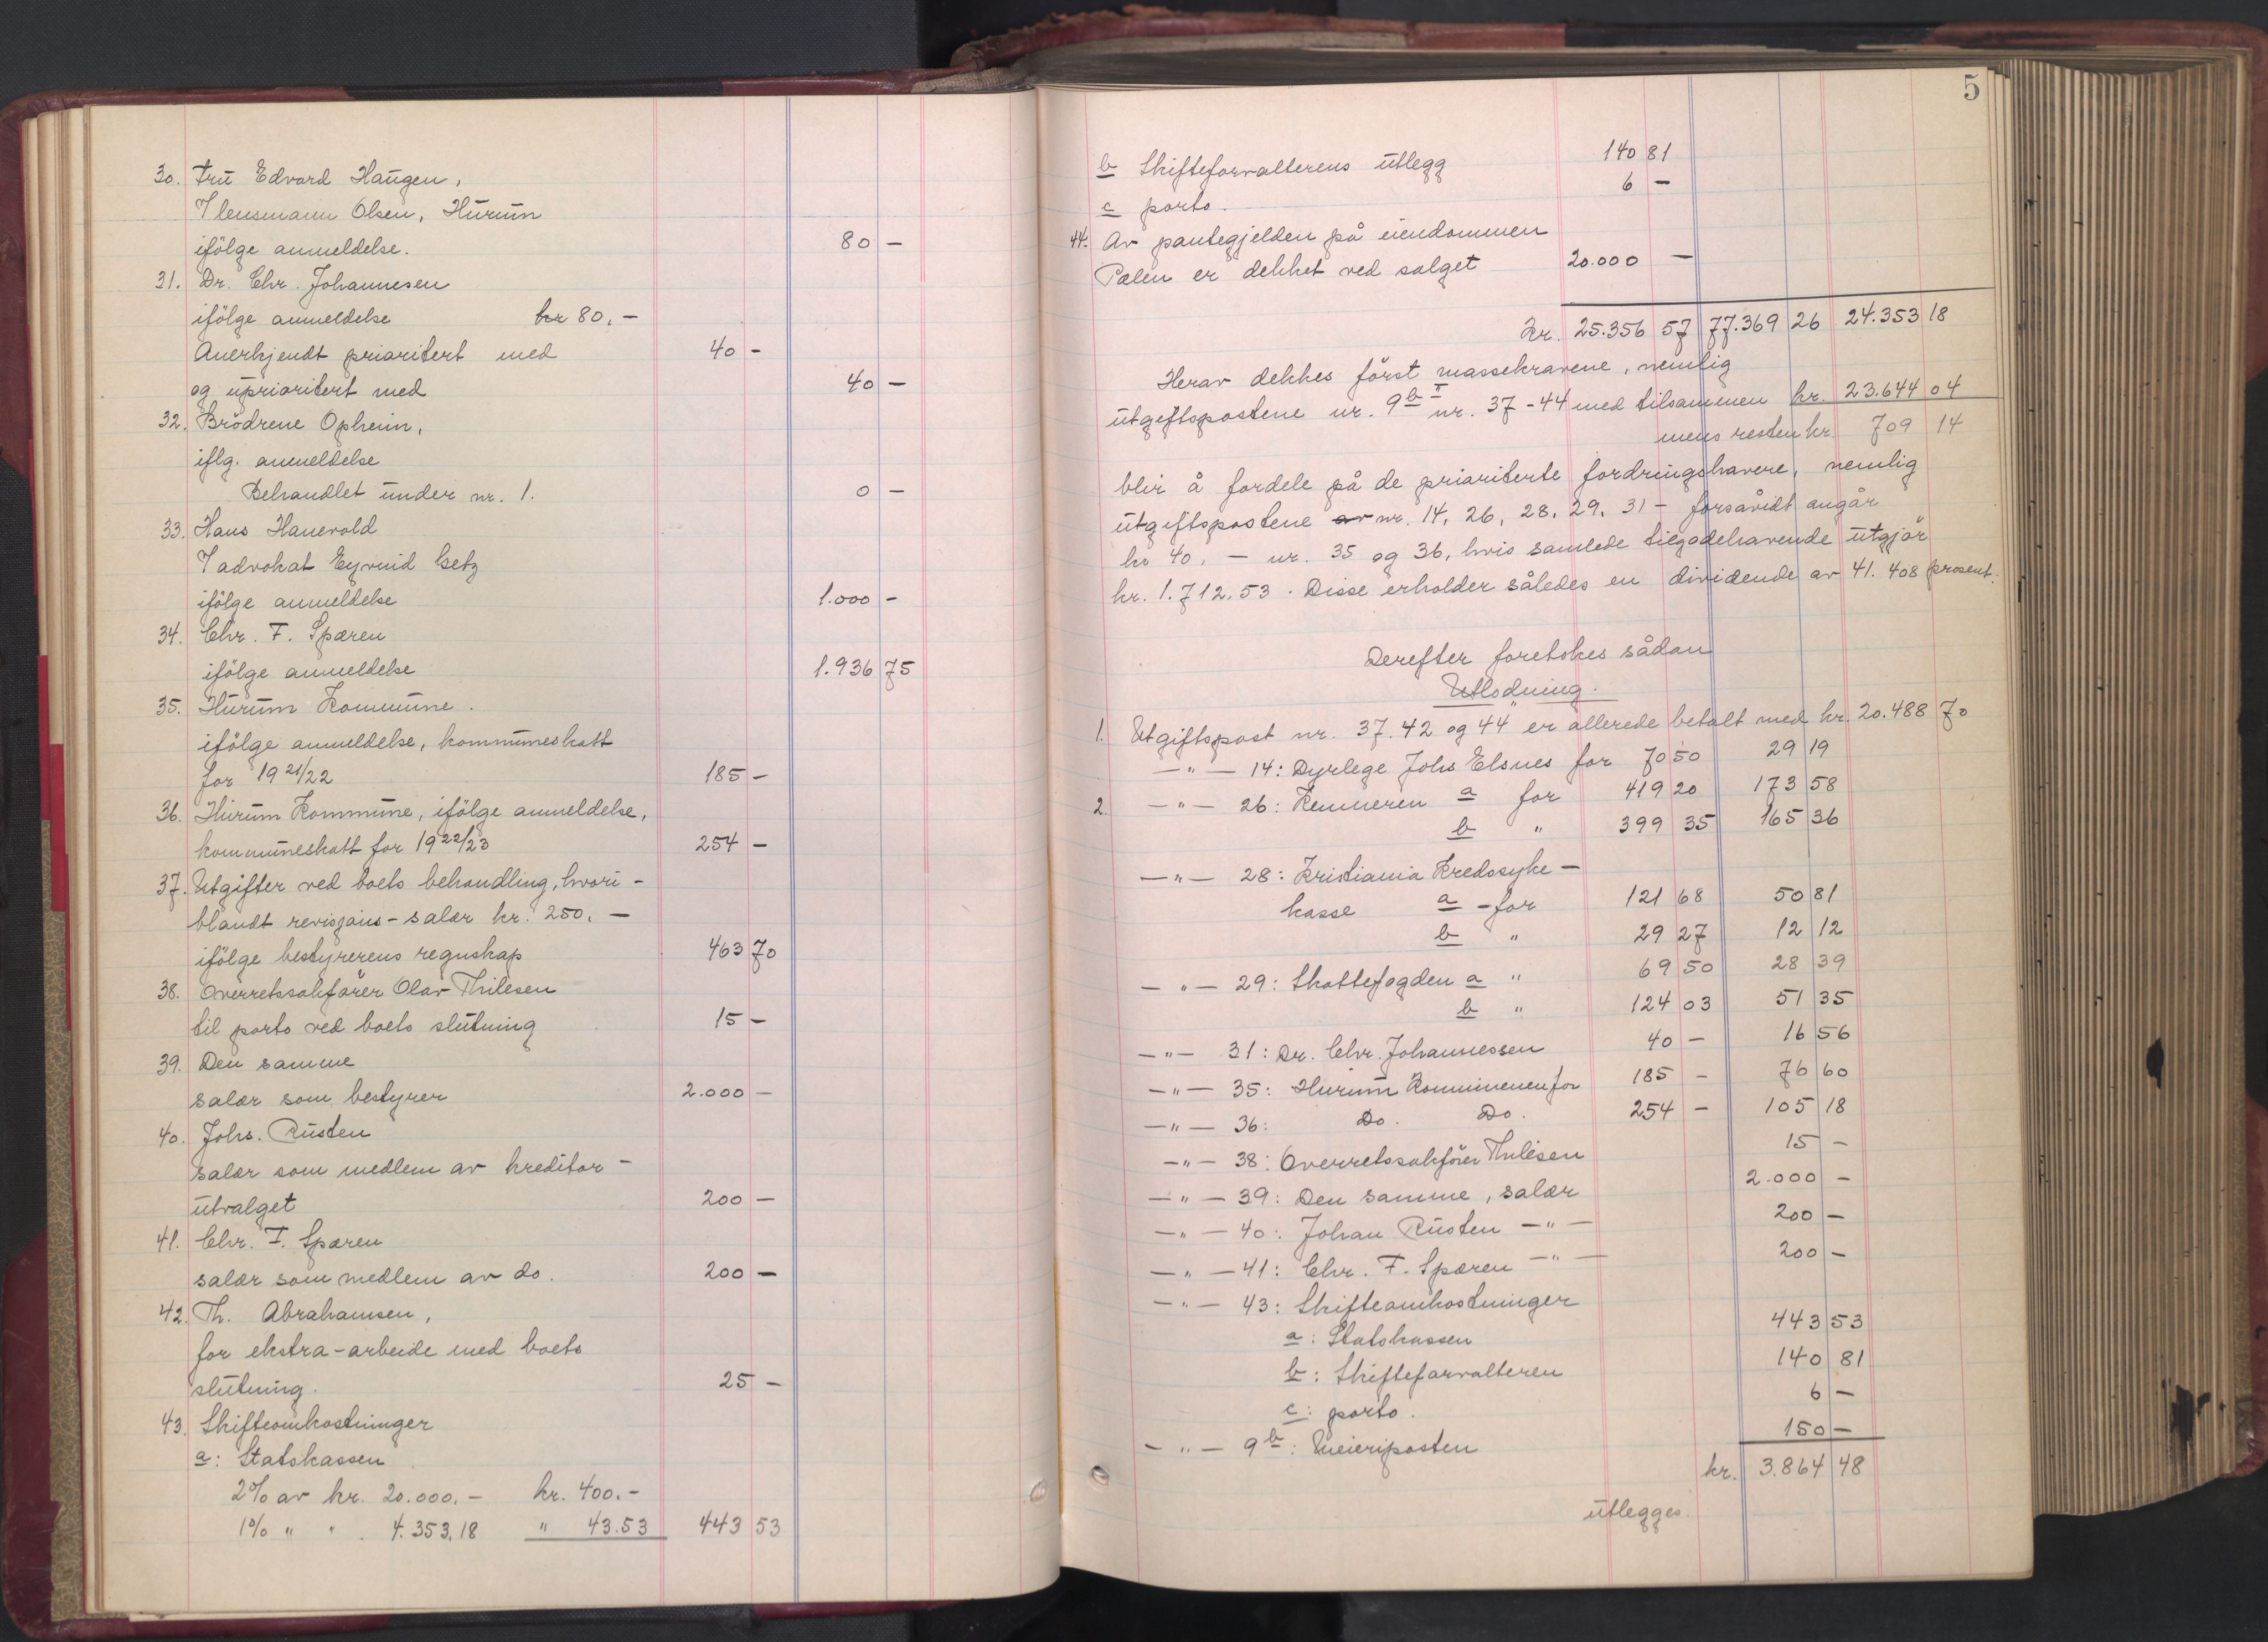 30. Fru Edvard Haugen,
℅ lensmann Olsen, Hurum
ifölge anmeldelse. 80 -
31. Dr. Chr. Johannesen
ifölge anmeldelse kr 80.-
Anerkjendt prioritert med 40 -
og uprioritert med 40 -
32. Brödrene Opheim,
iflg. anmeldelse
Behandlet under nr. 1. 0 -
33. Hans Hanevold
℅ advokat Eyvind Getz
ifölge anmeldelse 1.000 -
34. Chr. F. Spæren
ifölge anmeldelse 1.936 75
35. Hurum Kommune.
ifölge anmeldelse, kommuneskatt
for 19 21/22 185 -
36. Hurum Kommune, ifölge anmeldelse,
kommuneskatt for 19 22/23 254 -
37. Utgifter ved boets behandling, hvori-
blandt revisjons-salær kr. 250. -
ifölge bestyrerens regnskap 463 70
38. Overretssakförer Olav Thilesen
til porto ved boets slutning 15 -
39. Den samme
salær som bestyrer 2.000 -
40. Johs. Rusten
salær som medlem av kreditor-
utvalget 200 -
41. Chr. F. Spæren
salær som medlem av do. 200 -
42. Th. Abrahamsen,
for ekstra-arbeide med boets
slutning. 25 -
43. Skifteomkostninger
a: Statskassen
2% av kr. 20.000.- kr. 400.-
1% " " 4.353.18 " 43.53 443 53
5
b Skifteforvalterens utlegg 140 81
c porto. 6 -
44. Av pantegjelden på eiendommen
Pælen er dekket ved salget 20.000 -
Kr. 25.356 57 77.369 26 24.353 18
Herav dekkes först massekravene, nemlig
utgiftspostene nr. 9 b " nr. 37-44 med tilsammen kr. 23.644 04
mens resten kr. 709 14
blir å fordele på de prioriterte fordringshavere, nemlig
utgiftspostene av nr. 14, 26, 28, 29, 31 - forsåvidt angår
kr 40. - nr. 35 og 36, hvis samlede tilgodehavende utgjör
kr. 1.712.53. Disse erholder således en dividende av 41.408 prosent.
Derefter foretokes sådan
Utlodning.
1. Utgiftspost nr. 37. 42 og 44 er allerede betalt med kr. 20.488 70
-"- 14: Dyrlege Johs Elsnes for 70 50 29 19
2. -"- 26: Kemneren a for 419 20 173 58
b " 399 35 165 36
-"- 28: Kristiania Kredssyke-
kasse a - for 121 68 50 81
b " 29 27 12 12
-"- 29: Skattefogden a " 69 50 28 39
b " 124 03 51 35
-"- 31: Dr. Chr. Johannessen 40 - 16 56
-"- 35: Hurum Kommunen for 185 - 76 60
-"- 36: Do. Do. 254 - 105 18
-"- 38: Overretssakförer Thilesen 15 -
-"- 39: Den samme, salær 2.000 -
-"- 40: Johan Rusten -"- 200 -
-"- 41: Chr. F. Spæren -"- 200 -
-"- 43: Skifteomkostninger
a: Statskassen 443 53
b: Skifteforvalteren 140 81
c: porto. 6 -
-"- 9 b: Meieriposten 150 -
kr. 3.864 48
utlegges.